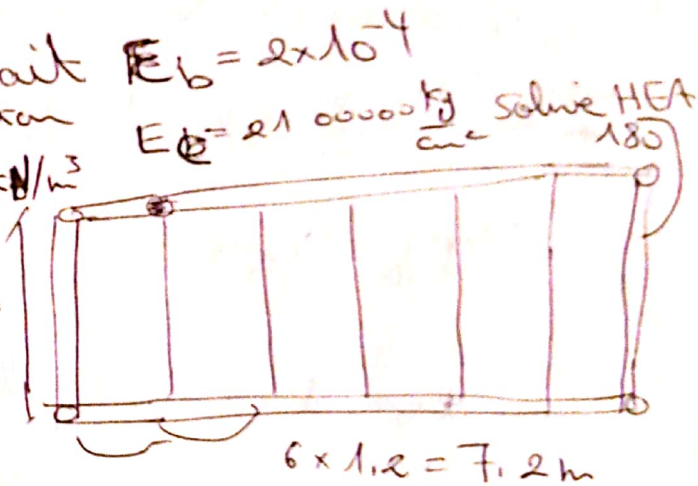 ait Eb = 2x10⁻⁴
Ee = 21 00000 kg/cm² solive HEA
180
kN/m³
6 x 1.2 = 7.2 m